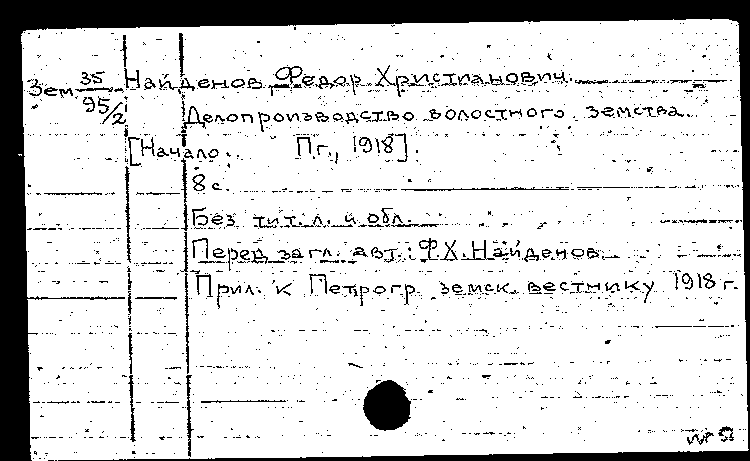 Зем 35 Найденов, Федор Христианович.
95/2 Делопроизводство волостного земства.
[Начало. Пг., 1918].
8 с.
Без тит. л. и обл.
Перед загл. авт.: Ф.Х. Найденов.
Прил. к Петрогр. земск. вестнику 1918 г.